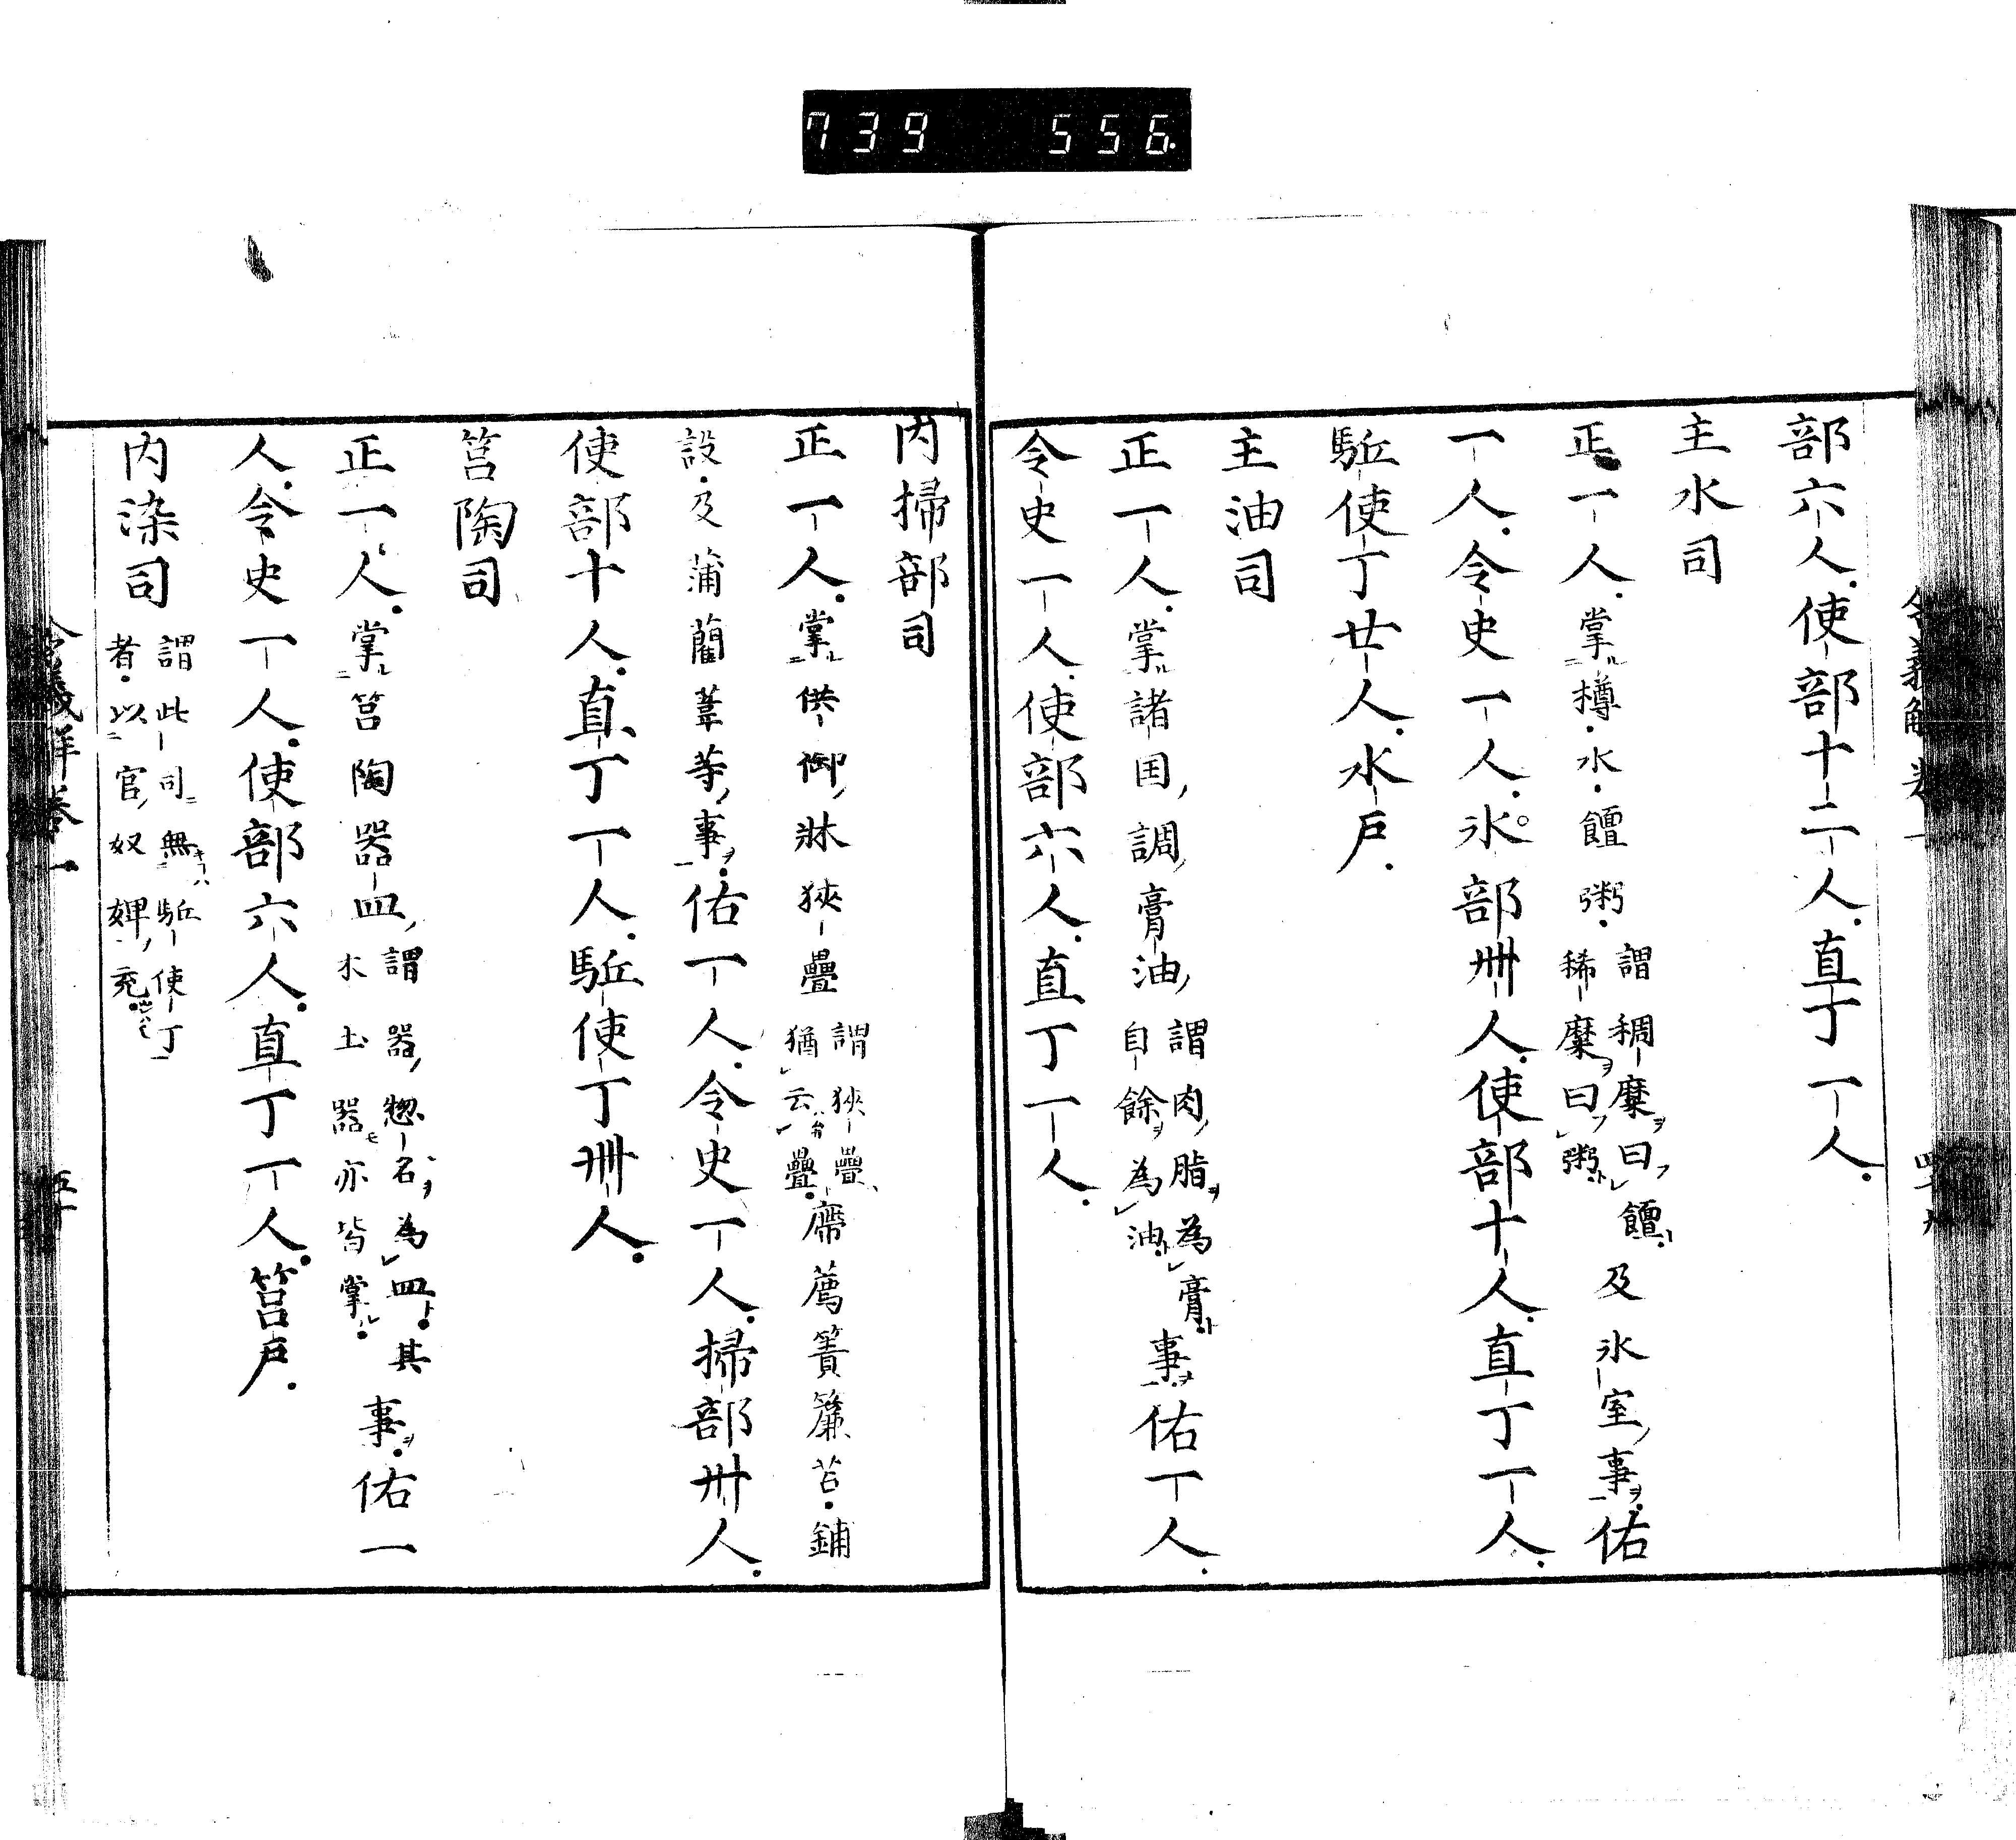 739 556
部六人使部十二人直丁一人
主水司
正一人掌樽水饘粥謂稠糜曰饘稀糜曰粥及氷室事佑
一人令史一人氷部卌人使部十人直丁一人
駈使丁廿人水戸
主油司
正一人掌諸国調膏油謂肉脂為膏自餘為油事佑一人
令史一人使部六人直丁一人
内掃部司
正一人掌供御牀狭疊謂狭疊猶云疊席薦簀簾苫鋪
設及蒲藺葦等事佑一人令史一人掃部卅人
使部十人直丁一人駈使丁卌人
筥陶司
正一人掌筥陶器皿謂器惣名為皿其木土器亦皆掌事佑一
人令史一人使部六人直丁一人筥戸
内染司謂此司無駈使丁者以官奴婢充